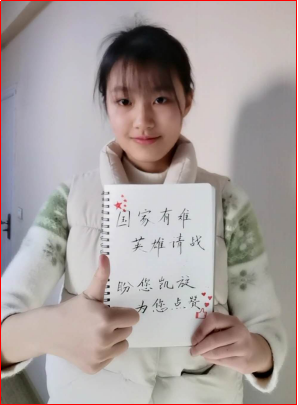 国家有难
英雄请战
盼您凯旋
为您点赞